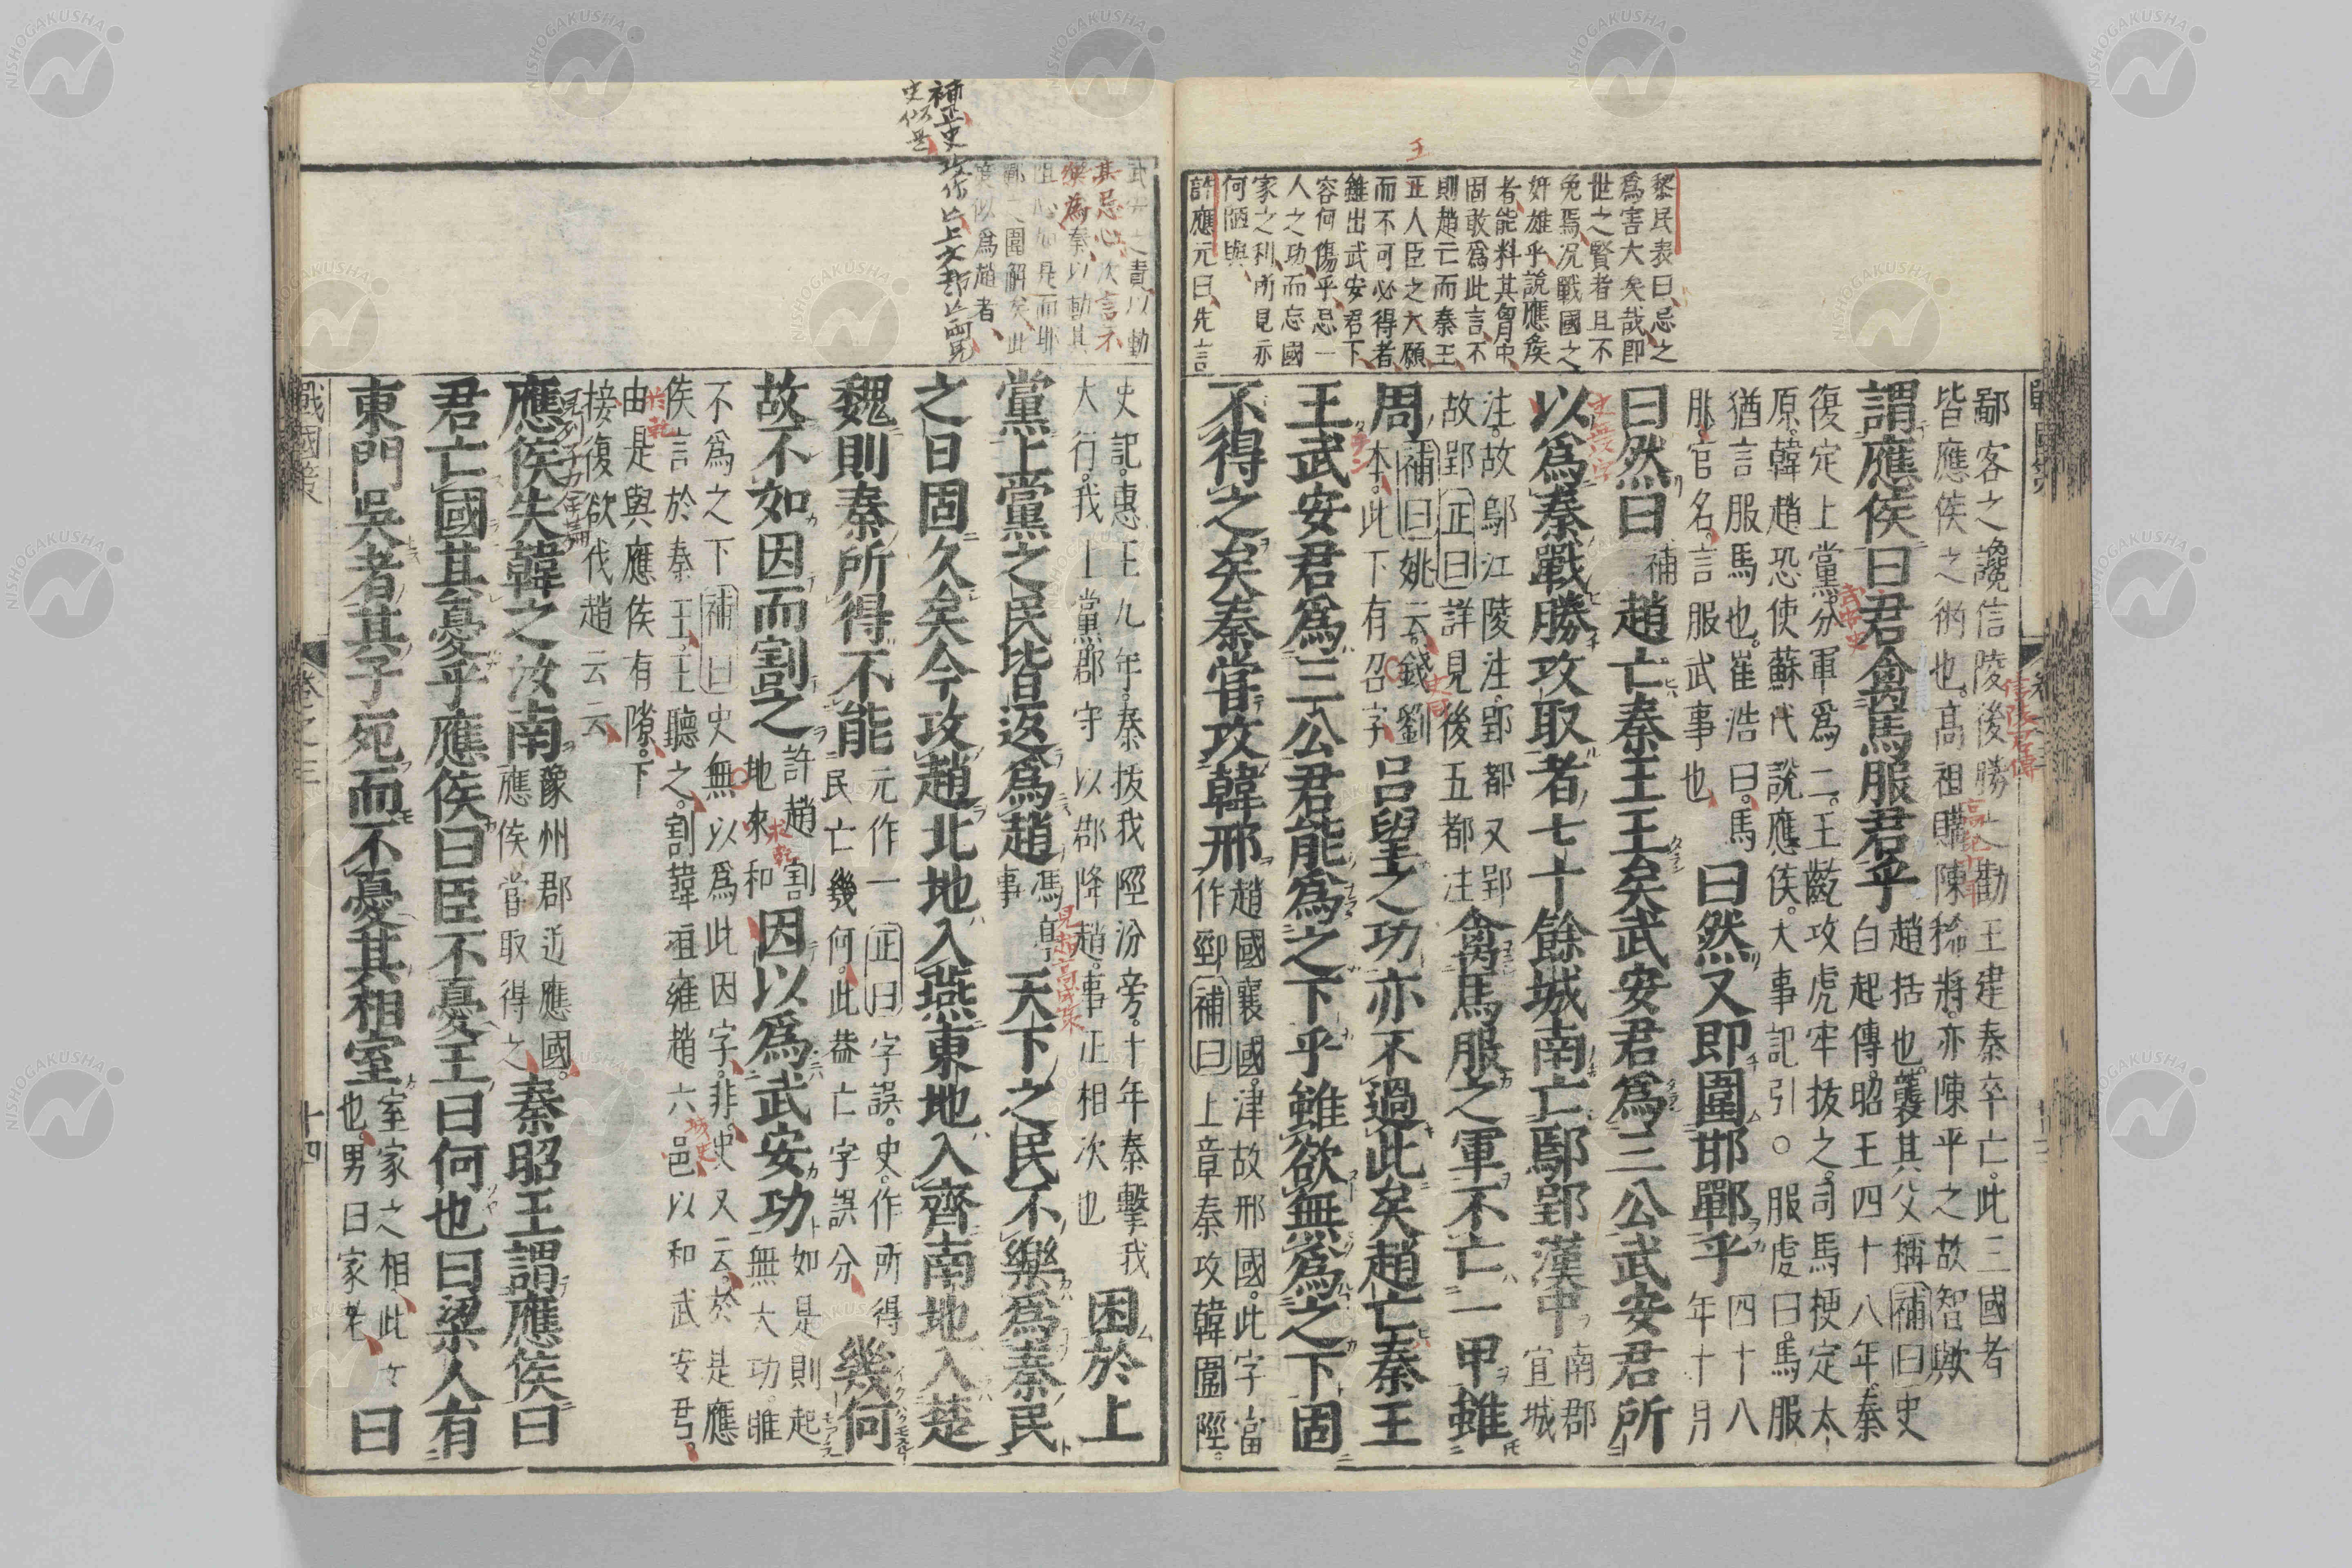 黎民表曰忌之
爲害大矣哉即
世之賢者且不
免焉况戰國之
奸雄乎說應矦
者能料其胷中
固敢爲此言不
則趙亡而秦王
正人臣之大願
而不可必得者
雖出武安君下
容何傷乎忌一
人之功而忘國
家之利所見亦
何陋與
許應元曰先言
鄙客之讒信陵後勝之勸王建秦卒亡此三國者
皆應侯之術也高祖購陳豨將亦陳平之故智歟
謂應侯曰君禽馬服君乎
趙括也襲其父稱補曰史
白起傳昭王四十八年秦
復定上黨分軍爲二王齕攻虎牢拔之司馬梗定太
原韓趙恐使蘇代說應侯大事記引○服虔曰馬服
猶言服馬也崔浩曰馬
服官名言服武事也
曰然又即圍邯鄲乎
四十八
年十月
曰然曰
補
趙亡秦王王矣武安君爲三公武安君所
以爲秦戰勝攻取者七十餘城南亡鄢郢漢中
南郡
宜城
注故鄢江陵注郢都又郢
故郢正曰詳見後五都注
禽馬服之軍不亡一甲雖
周
補曰姚云錢劉
本此下有召字
呂望之功亦不過此矣趙亡秦王
王武安君爲三公君能爲之下乎雖欲無爲之下固
不得之矣秦嘗攻韓邢
趙國襄國津故邢國此字當
作郢補曰上章秦攻韓圍陘
武安之貴以動
其忌心次言不
樂爲秦以動其
沮心如是而邯
鄲之圍解矣此
策似爲趙者
補正史
史似是
史記惠王九年秦拔我陘汾旁十年秦擊我
大行我上黨郡守以郡降趙事正相次也
困於上
黨上黨之民皆返爲趙
馮亭
事
天下之民不樂爲秦民
之日固久矣今攻趙北地入燕東地入齊南地入楚
魏則秦所得不能
元作一正曰字誤史作所得
民亡幾何此葢亡字誤分
幾何
故不如因而割之
許趙割
地來和
因以爲武安功
如是則起
無大功雖
不爲之下補曰史無以爲此因字非史又云於是應
侯言於秦王王聽之割韓垣雍趙六邑以和武安君
由是與應侯有隙下
接復欲伐趙云云
應侯失韓之汝南
豫州郡近應國
應侯當取得之
秦昭王謂應侯曰
君亡國其憂乎應侯曰臣不憂王曰何也曰梁人有
東門吳者其子死而不憂其相室
室家之相此女
也男曰家老
曰
戰國策
卷之三
十四